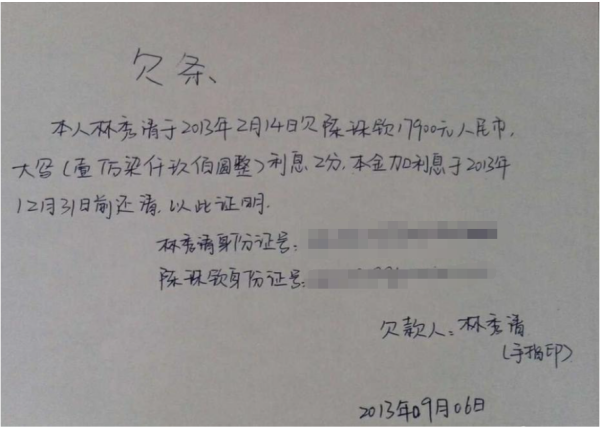 欠条
本人林秀清于2013年2月14日欠陈珠钦17900元人民币,
大写(壹万柒仟玖佰圆整)利息2分.本金加利息于2013年
12月31日前还清.以此证明.
林秀清身份证号:
陈珠钦身份证号:
欠款人:林秀清
(手指印)
2013年09月06日